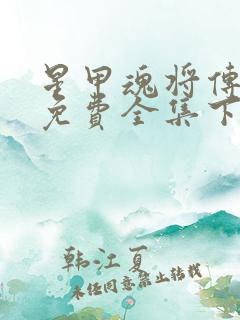 星甲魂将传
免费全集下
韩江夏
未经同意禁止转载